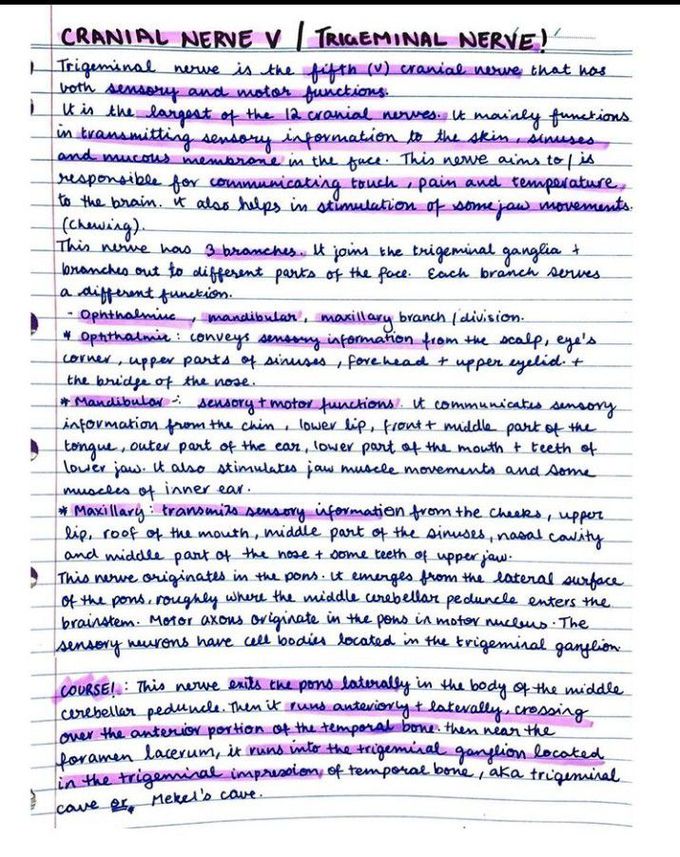 CRANIAL NERVE V / TRIGEMINAL NERVE!
Trigeminal nerve is the fifth (V) cranial nerve that has
both sensory and motor functions.
It is the largest of the 12 cranial nerves. It mainly functions
in transmitting sensory information to the skin, sinuses
and mucous membrane in the face. This nerve aims to / is
responsible for communicating touch, pain and temperature,
to the brain. It also helps in stimulation of some jaw movements.
(chewing).
This nerve has 3 branches. It joins the trigeminal ganglia +
branches out to different parts of the face. Each branch serves
a different function.
- Ophthalmic, mandibular, maxillary branch / division.
* Ophthalmic : conveys sensory information from the scalp, eye's
corner, upper parts of sinuses, forehead + upper eyelid. +
the bridge of the nose.
* Mandibular : sensory + motor functions. It communicates sensory
information from the chin, lower lip, front + middle part of the
tongue, outer part of the ear, lower part of the mouth + teeth of
lower jaw. It also stimulates jaw muscle movements and some
muscles of inner ear.
* Maxillary : transmits sensory information from the cheeks, upper
lip, roof of the mouth, middle part of the sinuses, nasal cavity
and middle part of the nose + some teeth of upper jaw.
This nerve originates in the pons. It emerges from the lateral surface
of the pons, roughly where the middle cerebellar peduncle enters the
brainstem. Motor axons originate in the pons in motor nucleus. The
sensory neurons have cell bodies located in the trigeminal ganglion
COURSE! : This nerve exits the pons laterally in the body of the middle
cerebellar peduncle. Then it runs anteriorly + laterally, crossing
over the anterior portion of the temporal bone. then near the
foramen lacerum, it runs into the trigeminal ganglion located
in the trigeminal impression of temporal bone, aka trigeminal
cave or Mekel's cave.